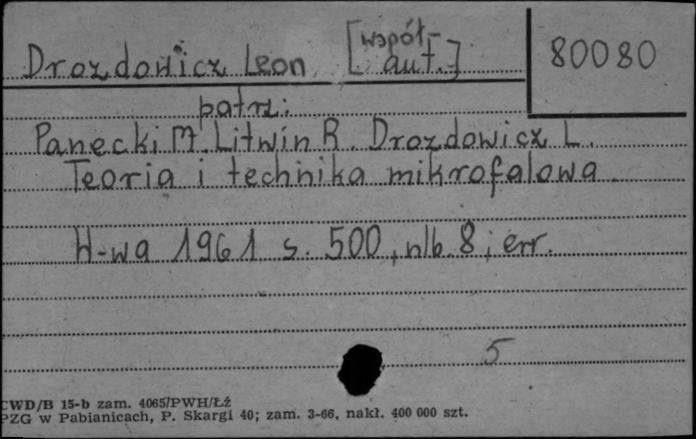 Drozdowicz Leon [współ-
aut.]
80080
patrz:
Panecki M. Litwin R. Drozdowicz L.
Teoria i technika mikrofalowa.
W-wa 1961 s. 500, nlb. 8, err.
5
CWD/B 15-b zam. 4065/PWH/Łź
PZG w Pabianicach, P. Skargi 40; zam. 3-66, nakł. 400 000 szt.